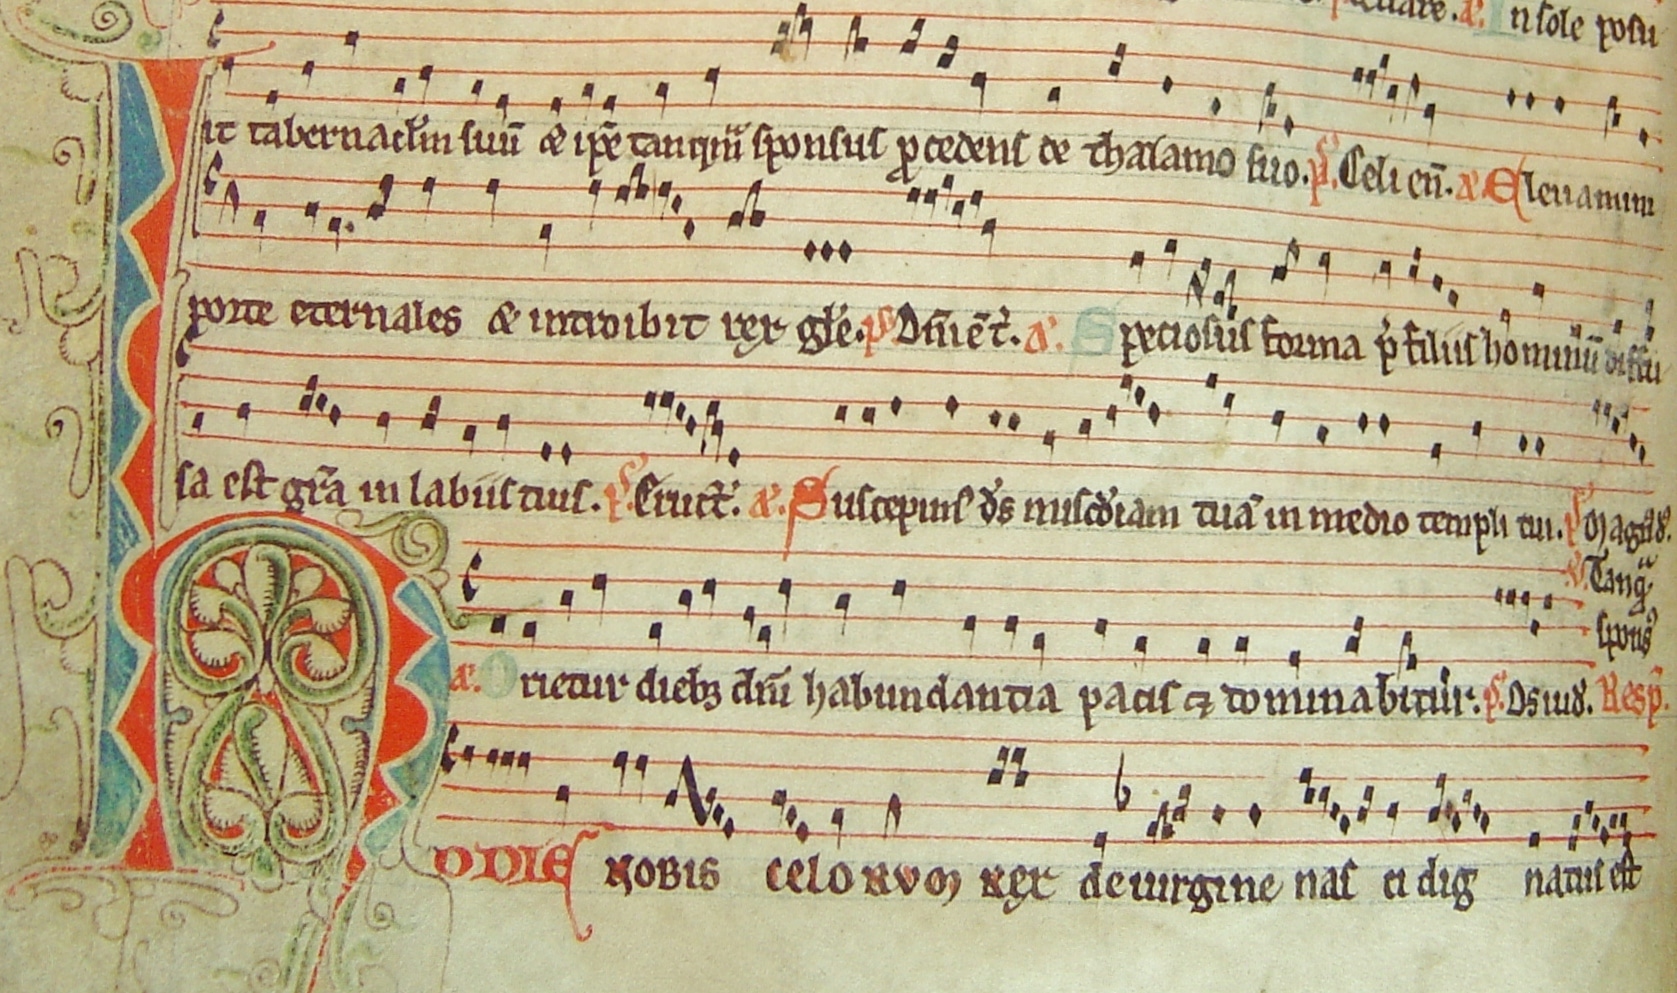 a. In sole posu
it tabernaclm suu̅ & ip̅e tanqua̅ sponsus p̱cedens de thalamo suo. p̅s. Celi en̅. a. Eleuamini
porte eternales & introibit rex gl̅e. p̅s. Dn̅i e̅ t̅. a. Speciosus forma p̅ filiis hominu̅ diffu
sa est gr̅a in labiis tuis. p̅s. Eruct̅. a. Suscepim᷒ d̅s mis̅c̅diam tua̅ in medio templi tui. p̅s. Magn᷒ d.
v. Tanq̅
spons᷒
a. Orietur dieb; dn̅i habundantia pacis ⁊ dominabitur. p̅s. Ds iud. Resp̅.
HODIE nobis celorum rex de uirgine nas ci dig natus est